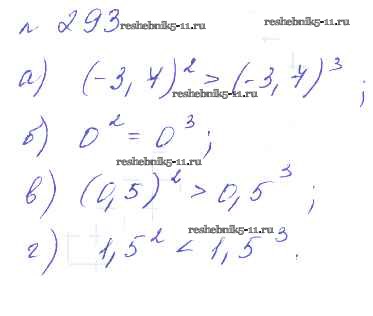 № 293 reshebnik5-11.ru reshebnik5-11.ru
а) (-3,7)² > (-3,7)³ ;
reshebnik5-11.ru
б) 0² = 0³ ;
reshebnik5-11.ru
в) (0,5)² > 0,5³ ;
reshebnik5-11.ru
г) 1,5² < 1,5³.
reshebnik5-11.ru